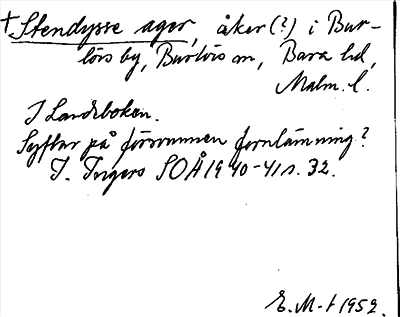 † Stendysse ager, åker (?) i Bur-
lövs by, Burlövs sn, Bara hd,
Malm. l.
I Landeboken.
Syftar på försvunnen fornlämning?
I. Ingers SOÅ 1940-41 s. 32.
E. M-t 1952.